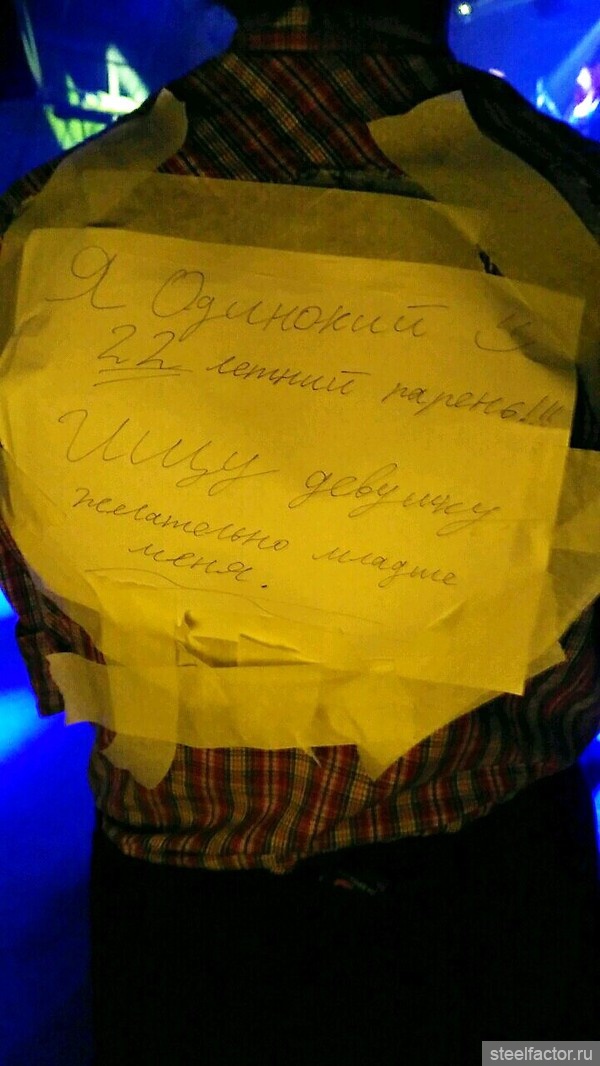 Я Одинокий
22 летний парень!!!
Ищу девушку
желательно младше
меня.
steelfactor.ru